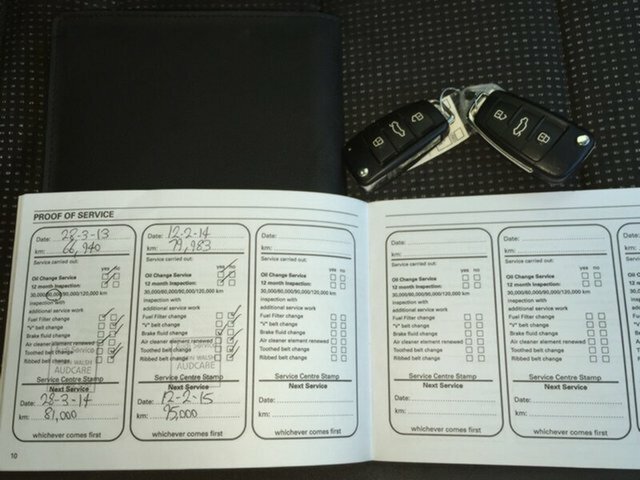 PROOF OF SERVICE
Date: 28-3-13
km: 66,940
Service carried out:
yes no
Oil Change Service
12 month Inspection:
30,000/60,000/90,000/120,000 km
inspection with
additional service work
Fuel Filter change
"V" belt change
Brake fluid change
Air cleaner element renewed
Toothed belt change
Ribbed belt change
WALSH
AUDCARE
Service Centre Stamp
Next Service
Date: 28-3-14
km: 81,000
whichever comes first
Date: 12-2-14
km: 79,983
Service carried out:
yes no
Oil Change Service
12 month Inspection:
30,000/60,000/90,000/120,000 km
inspection with
additional service work
Fuel Filter change
"V" belt change
Brake fluid change
Air cleaner element renewed
Toothed belt change
Ribbed belt change
WALSH
AUDCARE
Service Centre Stamp
Next Service
Date: 12-2-15
km: 95,000
whichever comes first
Date:
km:
Service carried out:
yes no
Oil Change Service
12 month Inspection:
30,000/60,000/90,000/120,000 km
inspection with
additional service work
Fuel Filter change
"V" belt change
Brake fluid change
Air cleaner element renewed
Toothed belt change
Ribbed belt change
Service Centre Stamp
Next Service
Date:
km:
whichever comes first
10
Date:
km:
Service carried out:
yes no
Oil Change Service
12 month Inspection:
30,000/60,000/90,000/120,000 km
inspection with
additional service work
Fuel Filter change
"V" belt change
Brake fluid change
Air cleaner element renewed
Toothed belt change
Ribbed belt change
Service Centre Stamp
Next Service
Date:
km:
whichever comes first
Date:
km:
Service carried out:
yes no
Oil Change Service
12 month Inspection:
30,000/60,000/90,000/120,000 km
inspection with
additional service work
Fuel Filter change
"V" belt change
Brake fluid change
Air cleaner element renewed
Toothed belt change
Ribbed belt change
Service Centre Stamp
Next Service
Date:
km:
whichever comes first